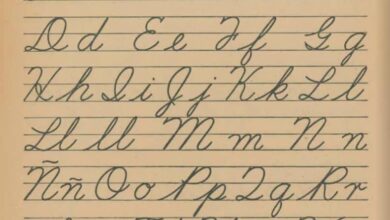 D d E e F f G g
H h I i J j K k L l
Ll ll M m N n
Ñ ñ O o P p Q q R r